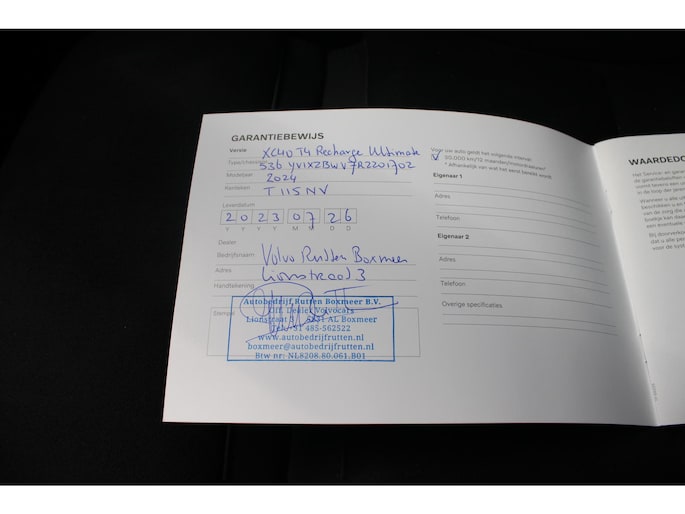 GARANTIEBEWIJS
Versie XC40 T4 Recharge Ultimate
Type/chassisnr. 536 YV1XZBWV7R2201702
Modeljaar 2024
Kenteken T115NV
Leverdatum
2023 07 26
Y Y Y Y M M D D
Dealer
Bedrijfsnaam Volvo Rutten Boxmeer
Adres Lionstraat 3
Handtekening
Stempel
Autobedrijf Rutten Boxmeer B.V.
Off. Dealer Volvocars
Lionstraat 3 5831 AL Boxmeer
Tel. 31 485-562522
www.autobedrijfrutten.nl
boxmeer@autobedrijfrutten.nl
Btw nr: NL8208.80.061.B01
Voor uw auto geldt het volgende interval:
30.000 km/12 maanden/motordraaiuren*
* Afhankelijk van wat het eerst bereikt wordt.
Eigenaar 1
Adres
Telefoon
Eigenaar 2
Adres
Telefoon
Overige specificaties
WAARDEDO
Het Service- en garan
de garantiebeloften
vormt tevens een
in de loop der jaren
Wanneer u alle
beschikken u en
van de zorg die
boekje kan daar
een eventuele
Bij doorverkoop
dat u alle
voor de